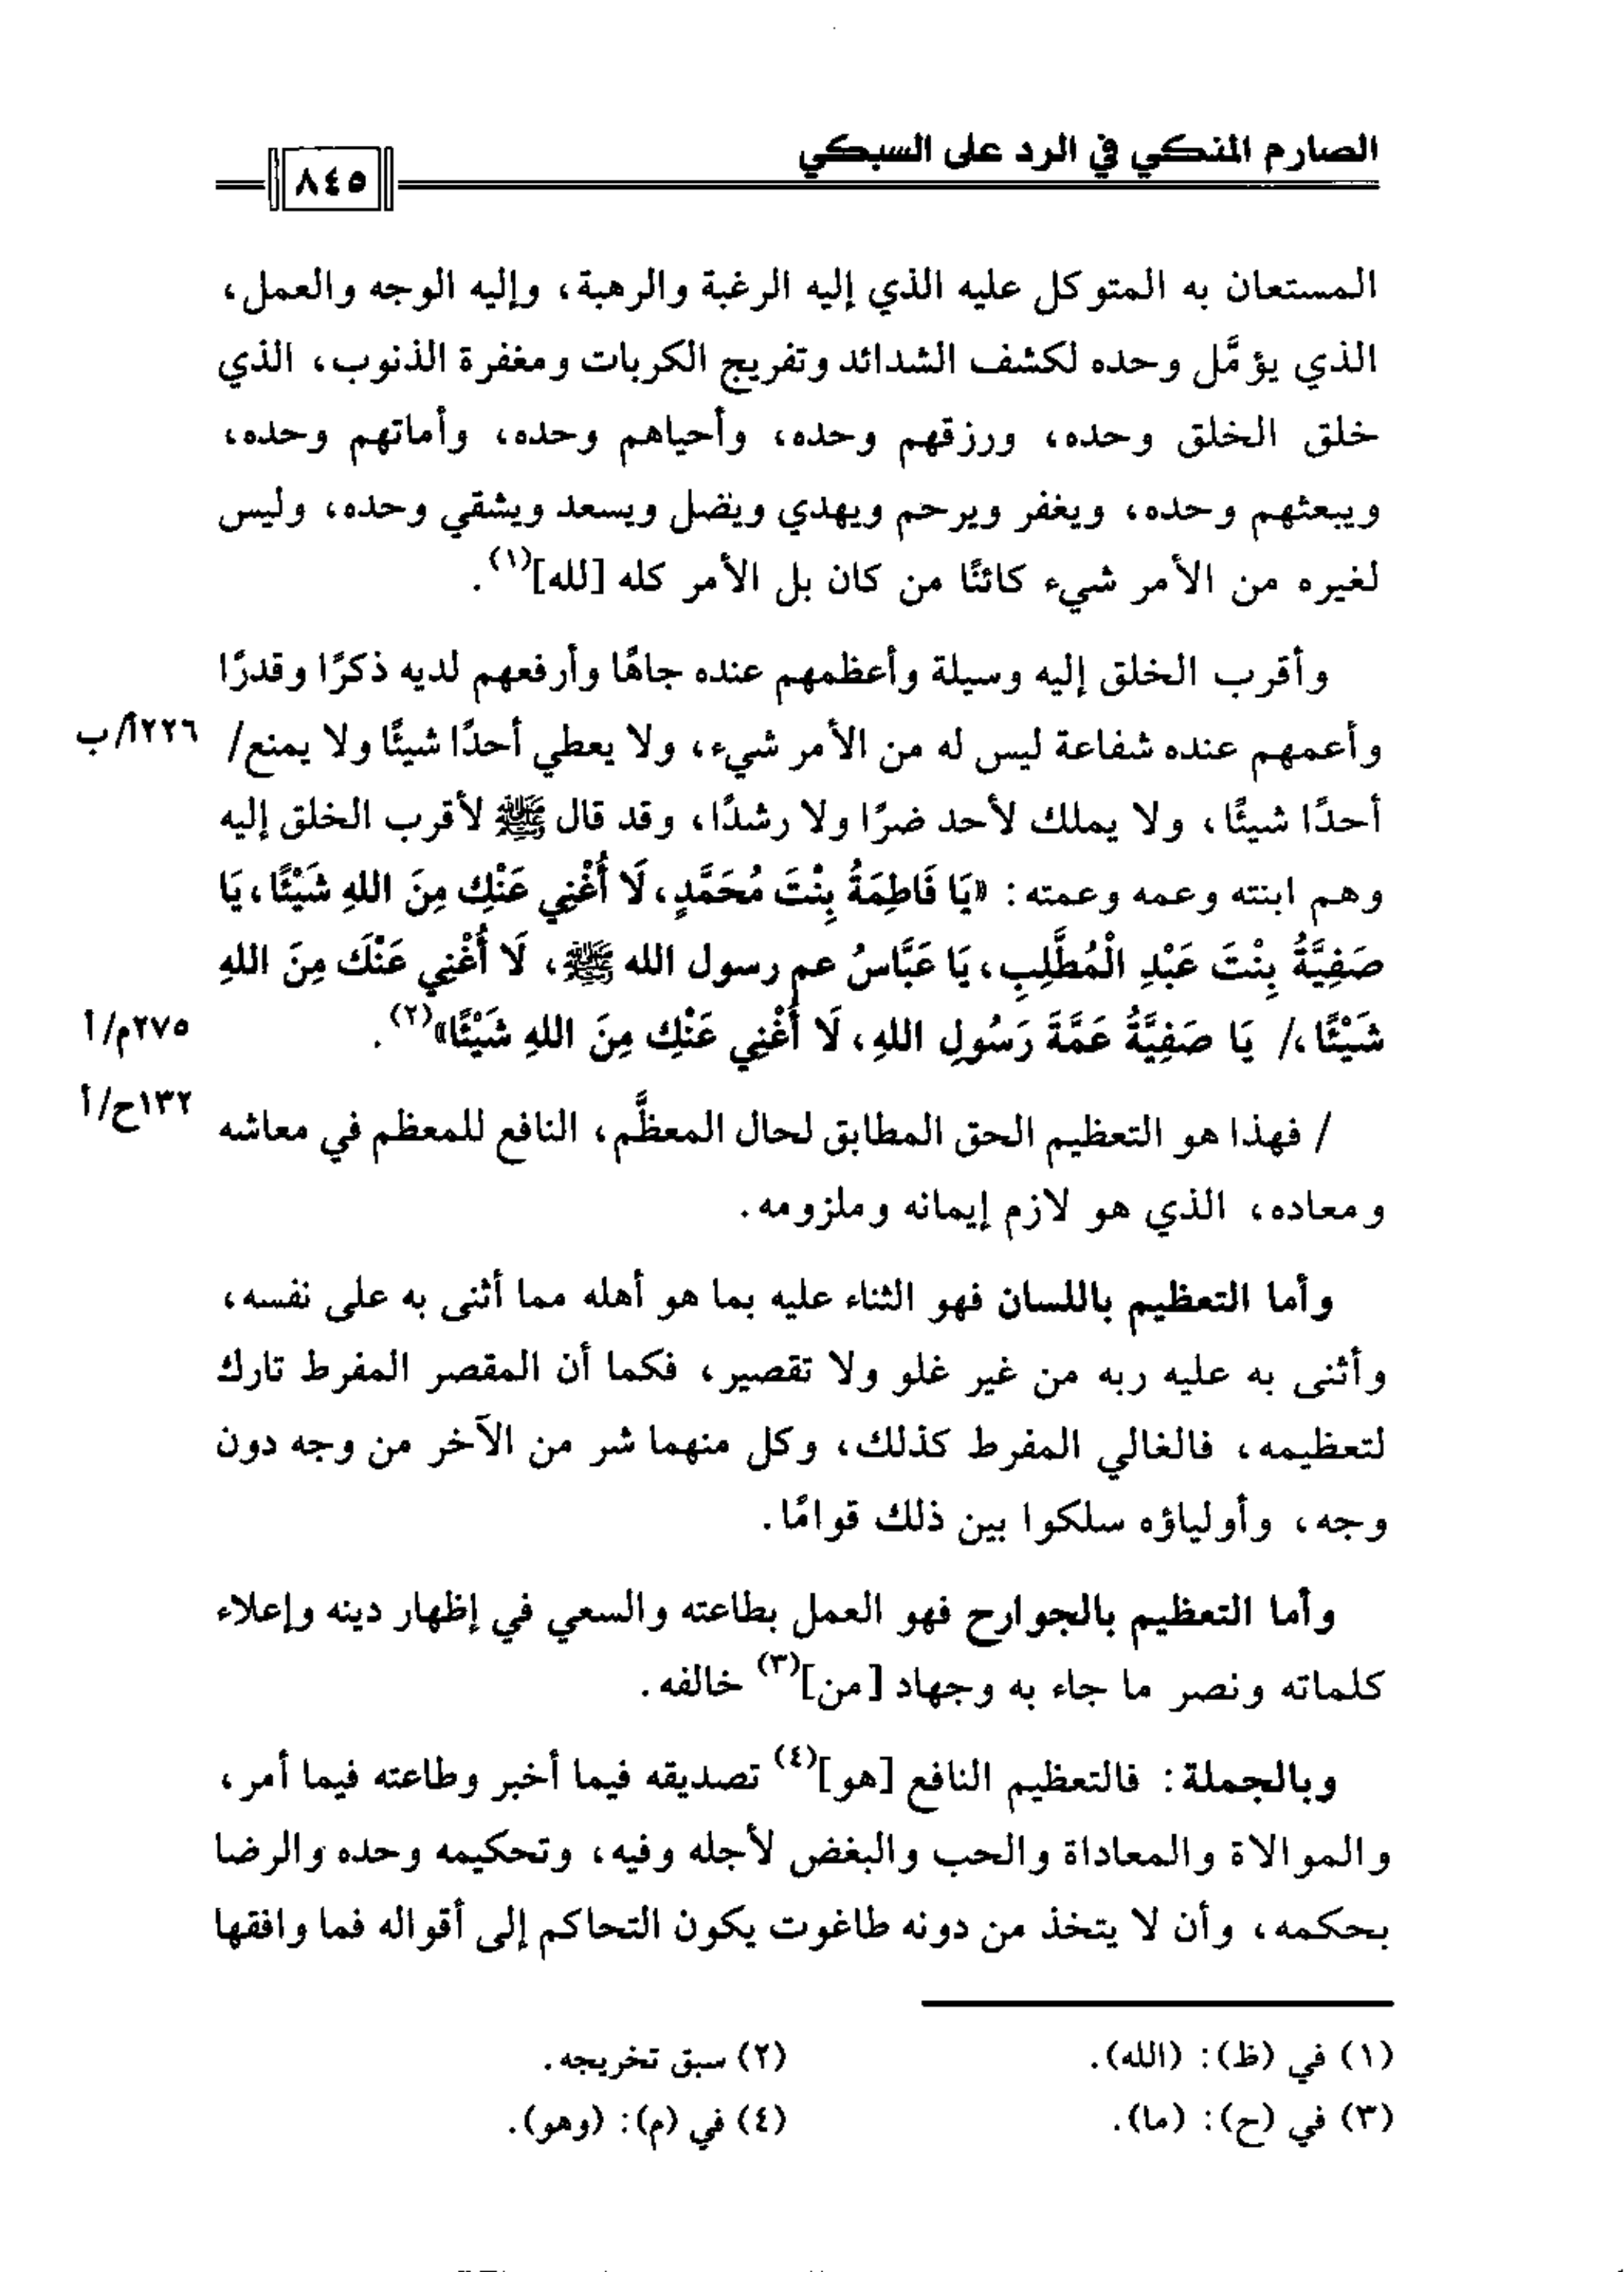 الصارم المنكي في الرد على السبكي
٨٤٥
المستعان به المتوكل عليه الذي إليه الرغبة والرهبة، وإليه الوجه والعمل،
الذي يؤمَّل وحده لكشف الشدائد وتفريج الكربات ومغفرة الذنوب، الذي
خلق الخلق وحده، ورزقهم وحده، وأحياهم وحده، وأماتهم وحده،
ويبعثهم وحده، ويغفر ويرحم ويهدي ويضل ويسعد ويشقي وحده، وليس
لغيره من الأمر شيء كائنًا من كان بل الأمر كله [لله](١).
وأقرب الخلق إليه وسيلة وأعظمهم عنده جاهًا وأرفعهم لديه ذكرًا وقدرًا
وأعمهم عنده شفاعة ليس له من الأمر شيء، ولا يعطي أحدًا شيئًا ولا يمنع/ ٢٢٦أ/ب
أحدًا شيئًا، ولا يملك لأحد ضرًا ولا رشدًا، وقد قال ﷺ لأقرب الخلق إليه
وهم ابنته وعمه وعمته: «يَا فَاطِمَةُ بِنْتَ مُحَمَّدٍ، لَا أُغْنِي عَنْكِ مِنَ اللهِ شَيْئًا، يَا
صَفِيَّةُ بِنْتَ عَبْدِ الْمُطَّلِبِ، يَا عَبَّاسُ عم رسول الله ﷺ، لَا أُغْنِي عَنْكَ مِنَ اللهِ
شَيْئًا،/ يَا صَفِيَّةُ عَمَّةَ رَسُولِ اللهِ، لَا أُغْنِي عَنْكِ مِنَ اللهِ شَيْئًا»(٢). ٢٧٥م/أ
/ فهذا هو التعظيم الحق المطابق لحال المعظَّم، النافع للمعظم في معاشه ١٣٢ح/أ
ومعاده، الذي هو لازم إيمانه وملزومه.
وأما التعظيم باللسان فهو الثناء عليه بما هو أهله مما أثنى به على نفسه،
وأثنى به عليه ربه من غير غلو ولا تقصير، فكما أن المقصر المفرط تارك
لتعظيمه، فالغالي المفرط كذلك، وكل منهما شر من الآخر من وجه دون
وجه، وأولياؤه سلكوا بين ذلك قوامًا.
وأما التعظيم بالجوارح فهو العمل بطاعته والسعي في إظهار دينه وإعلاء
كلماته ونصر ما جاء به وجهاد [من](٣) خالفه.
وبالجملة: فالتعظيم النافع [هو](٤) تصديقه فيما أخبر وطاعته فيما أمر،
والموالاة والمعاداة والحب والبغض لأجله وفيه، وتحكيمه وحده والرضا
بحكمه، وأن لا يتخذ من دونه طاغوت يكون التحاكم إلى أقواله فما وافقها
(١) في (ظ): (الله).
(٢) سبق تخريجه.
(٣) في (ح): (ما).
(٤) في (م): (وهو).